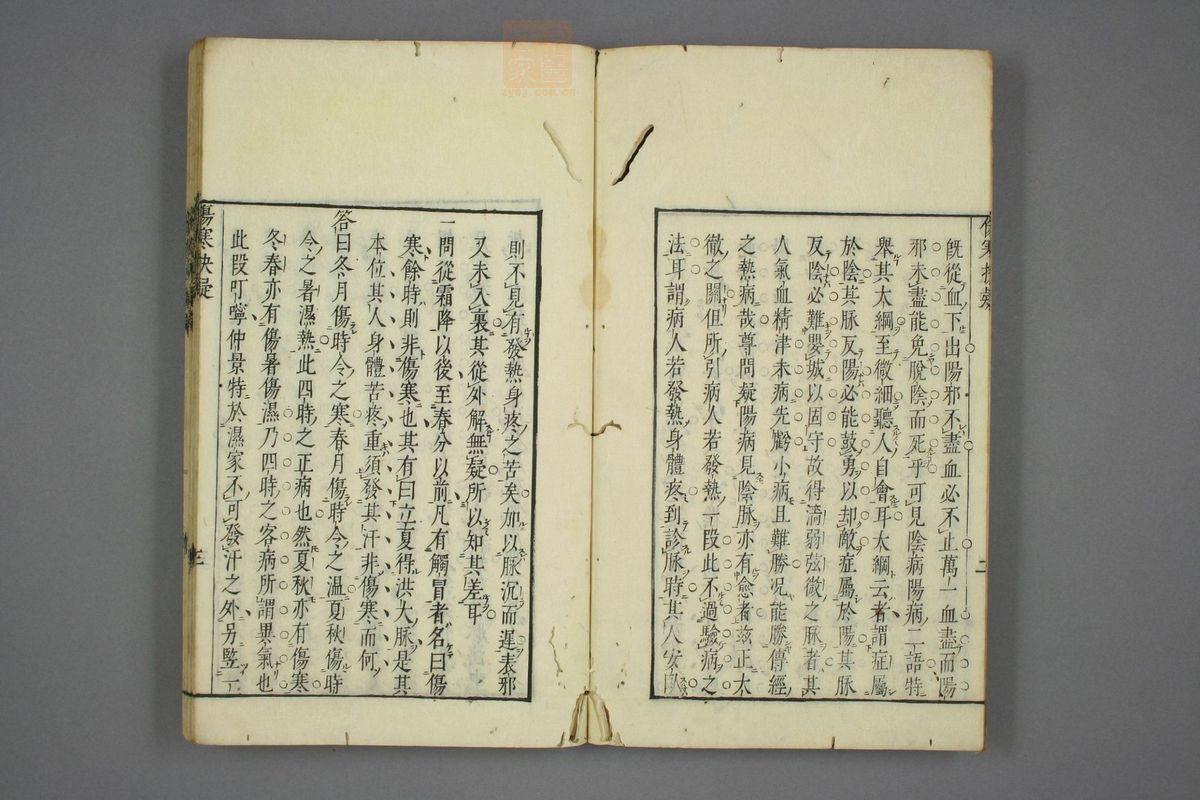 既從血下出陽邪不盡血必不止萬一血盡而陽
邪未盡能免脫陰而死乎可見陰病陽病二語特
舉其大綱至微細聽人自會耳大綱云者謂症屬
於陰其脉反陽必能鼓勇以却敵症屬於陽其脉
反陰必難嬰城以固守故得濇弱弦微之脉者其
人氣血精津未病先虧小病且難勝况能勝傳經
之熱病哉尊問疑陽病見陰脉亦有愈者玆正大
微之關但所引病人若發熱一段此不過驗病之
法耳謂病人若發熱身體疼到診脉時其人安臥
傷寒抉疑
二
則不見有發熱身疼之苦矣加以脉沉而遲表邪
又未入裏其從外解無疑所以知其差耳
一問從霜降以後至春分以前凡有觸冒者名曰傷
寒餘時則非傷寒也其有曰立夏得洪大脉是其
本位其人身體苦疼重須發其汗非傷寒而何
答曰冬月傷時令之寒春月傷時令之温夏秋傷時
令之暑濕熱此四時之正病也然夏秋亦有傷寒
冬春亦有傷暑傷濕乃四時之客病所謂異氣也
此段叮嚀仲景特於濕家不可發汗之外另監一
傷寒抉疑
三